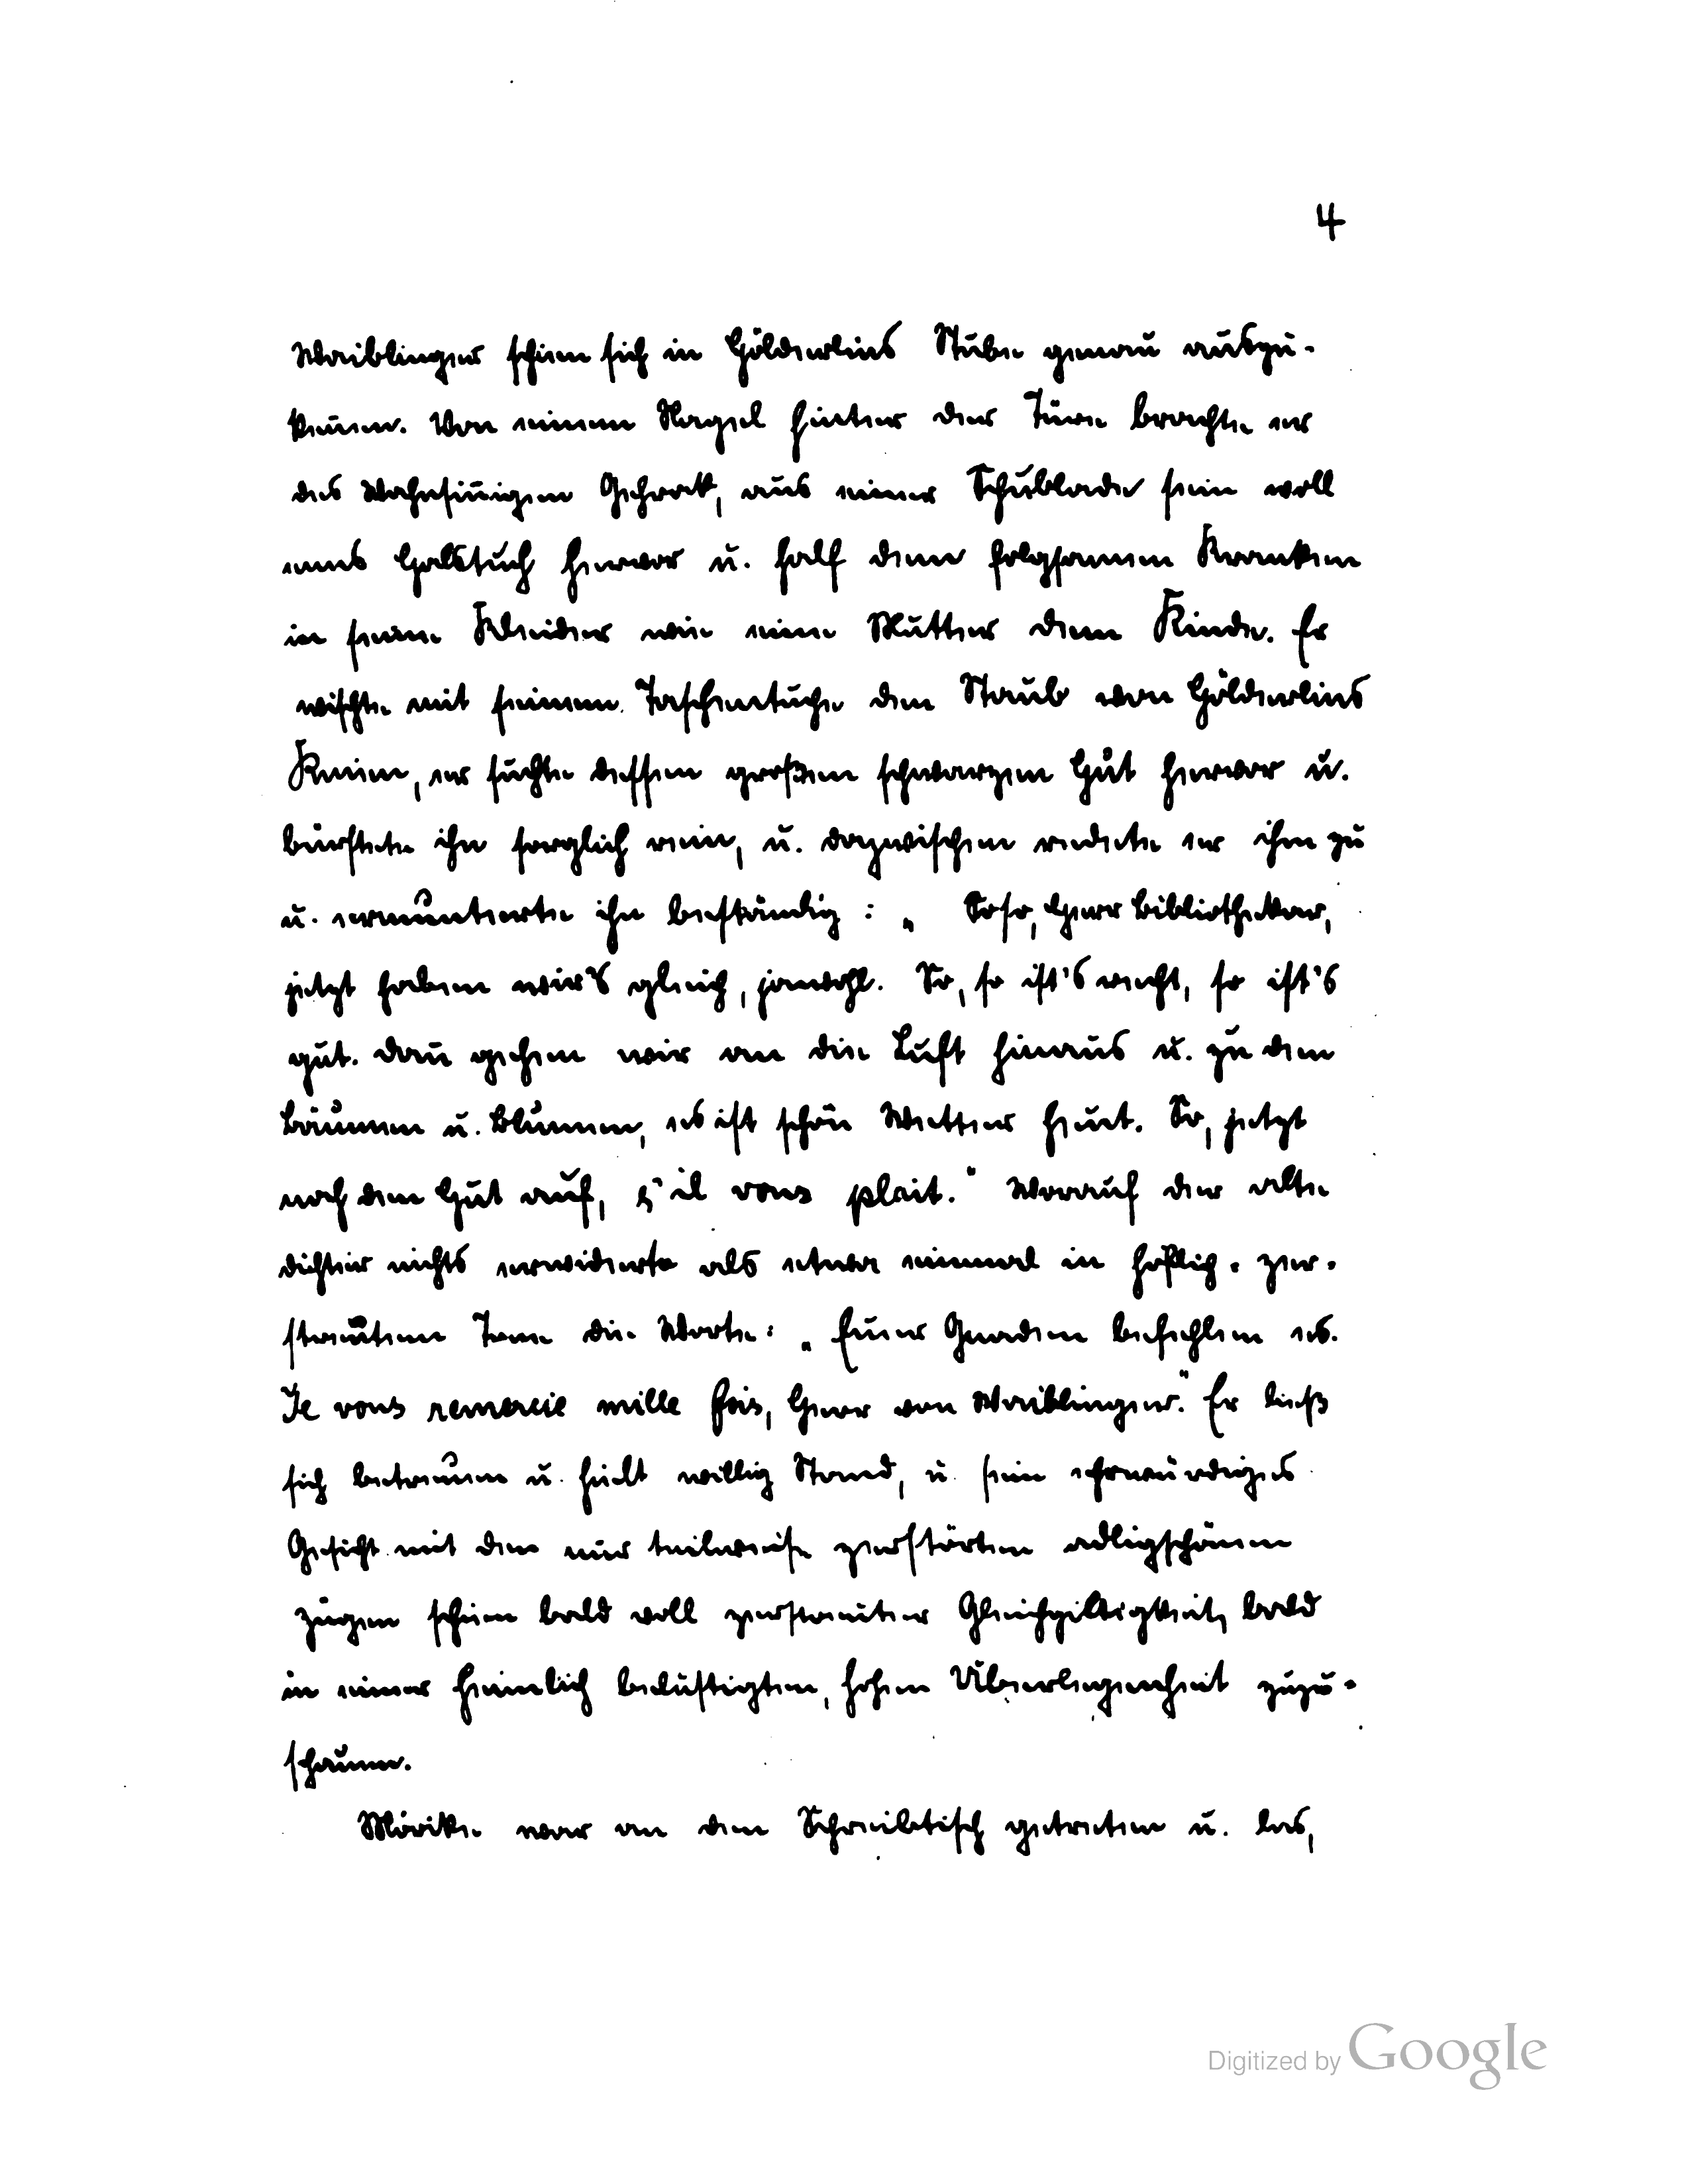 4
Waiblinger schien sich in Hölderlins Stube genau auszu-
kennen. Von einem Nagel hinter der Türe brachte er
des Wahnsinnigen Gehrock, aus einer Schublade sein woll
enes Halstuch hervor u. half dem folgsamen Kranken
in seine Kleider wie eine Mutter dem Kinde. Er
wischte mit seinem Taschentuche den Staub von Hölderlins
Knieen, er suchte dessen großen schwarzen Hut hervor u.
bürstete ihn sorglich rein, u. dazwischen redete er ihm zu
u. ermunterte ihn beständig: „Soso, Herr Bibliothekar,
jetzt haben wir's gleich, jawohl. So, so ist's recht, so ist's
gut. Dann gehen wir an die Luft hinaus u. zu den
Bäumen u. Blumen, es ist schön Wetter heut. So, jetzt
noch den Hut auf, s'il vous plait." Worauf der alte
Dichter nichts erwiderte als etwa einmal in höflich-zer-
streutem Tone die Worte: „Euer Gnaden befehlen es.
Je vous remercie mille fois, Herr von Waiblinger." Er ließ
sich betreuen u. hielt willig Stand, u. sein ehrwürdiges
Gesicht mit den nur teilweise zerstörten adligschönen
Zügen schien bald voll zerstreuter Gleichgiltigkeit, bald
in einer heimlich belustigten, hohen Überlegenheit zuzu-
schauen.
Mörike war an den Schreibtisch getreten u. las,
Digitized by Google